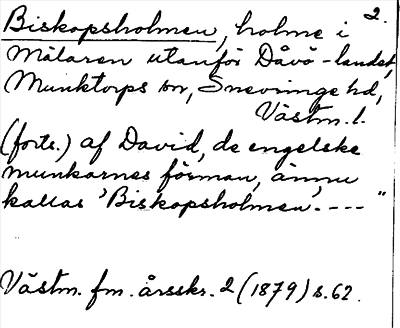 2.
Biskopsholmen, holme i
Mälaren utanför Dåvö-landet,
Munktorps sn, Snevringe hd,
Västm. l.
(forts.) af David, de engelske
munkarnes förman, ännu
kallas 'Biskopsholmen'. ---"
Västm. fm. årsskr. 2 (1879) s. 62.